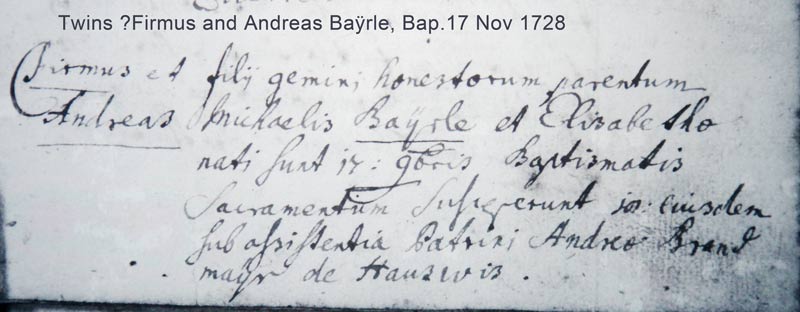 Twins ?Firmus and Andreas Baÿrle, Bap.17 Nov 1728
Firmus et filÿ gemini honestorum parentum
Andreas Michaelis Baÿrle et Elisabetha
nati sunt 17: 9bris Baptismatis
Sacramentum susceperunt eiusdem
sub assistentia Patrini Andreo Brand
maÿr de Hauswis.